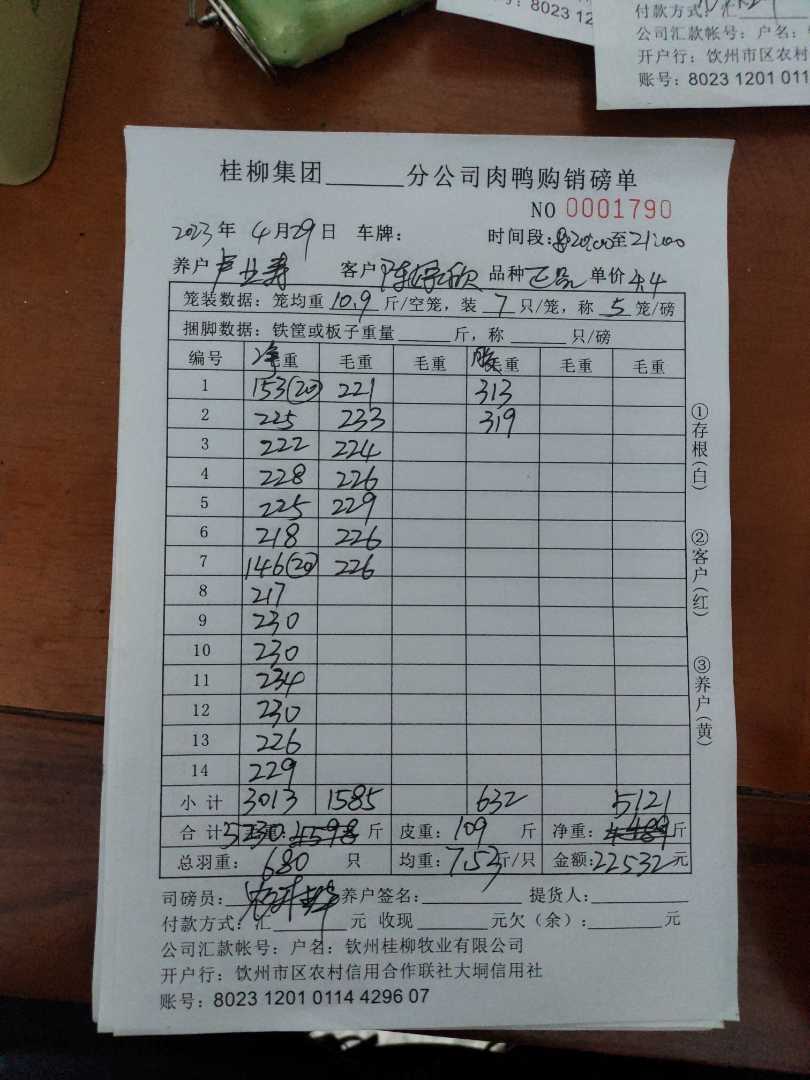 8023
付款方式:汇
公司汇款帐号:户名:
开户行:饮州市区农村
账号:8023 1201 011
桂柳集团______分公司肉鸭购销磅单
NO 0001790
2023年 4月29日 车牌: 时间段:20:00至21:00
养户 客户 品种 正品 单价 4.4
笼装数据:笼均重 10.9 斤/空笼,装 7 只/笼,称 5 笼/磅
捆脚数据:铁筐或板子重量______斤,称______只/磅
编号 净重 毛重 毛重 毛重 毛重 毛重
1 153(20) 221 313
2 225 233 319
3 222 224
4 228 226
5 225 229
6 218 226
7 146(20) 226
8 217
9 230
10 230
11 234
12 230
13 226
14 229
小计 3013 1585 632 5121
合计 5230 4598 斤 皮重: 109 斤 净重: 4489 斤
总羽重: 680 只 均重: 7.53 斤/只 金额: 22532 元
司磅员: 养户签名:______ 提货人:______
付款方式:汇______元 收现______元欠(余):______元
公司汇款帐号:户名:钦州桂柳牧业有限公司
开户行:饮州市区农村信用合作联社大垌信用社
账号:8023 1201 0114 4296 07
①存根(白)
②客户(红)
③养户(黄)